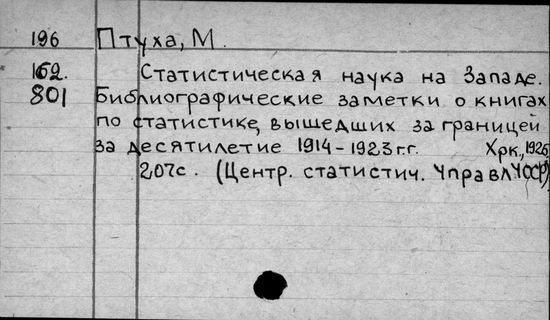 196 Птуха, М.
162. Статистическая наука на Западе.
801 Библиографические заметки о книгах
по статистике, вышедших за границей
за десятилетие 1914-1923 г.г. Хрк, 1925,
207с. (Центр. статистич. Управл УССР)